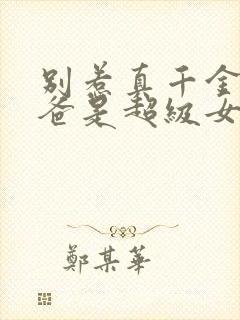 别惹真千金
爸是超级女
鄭某華